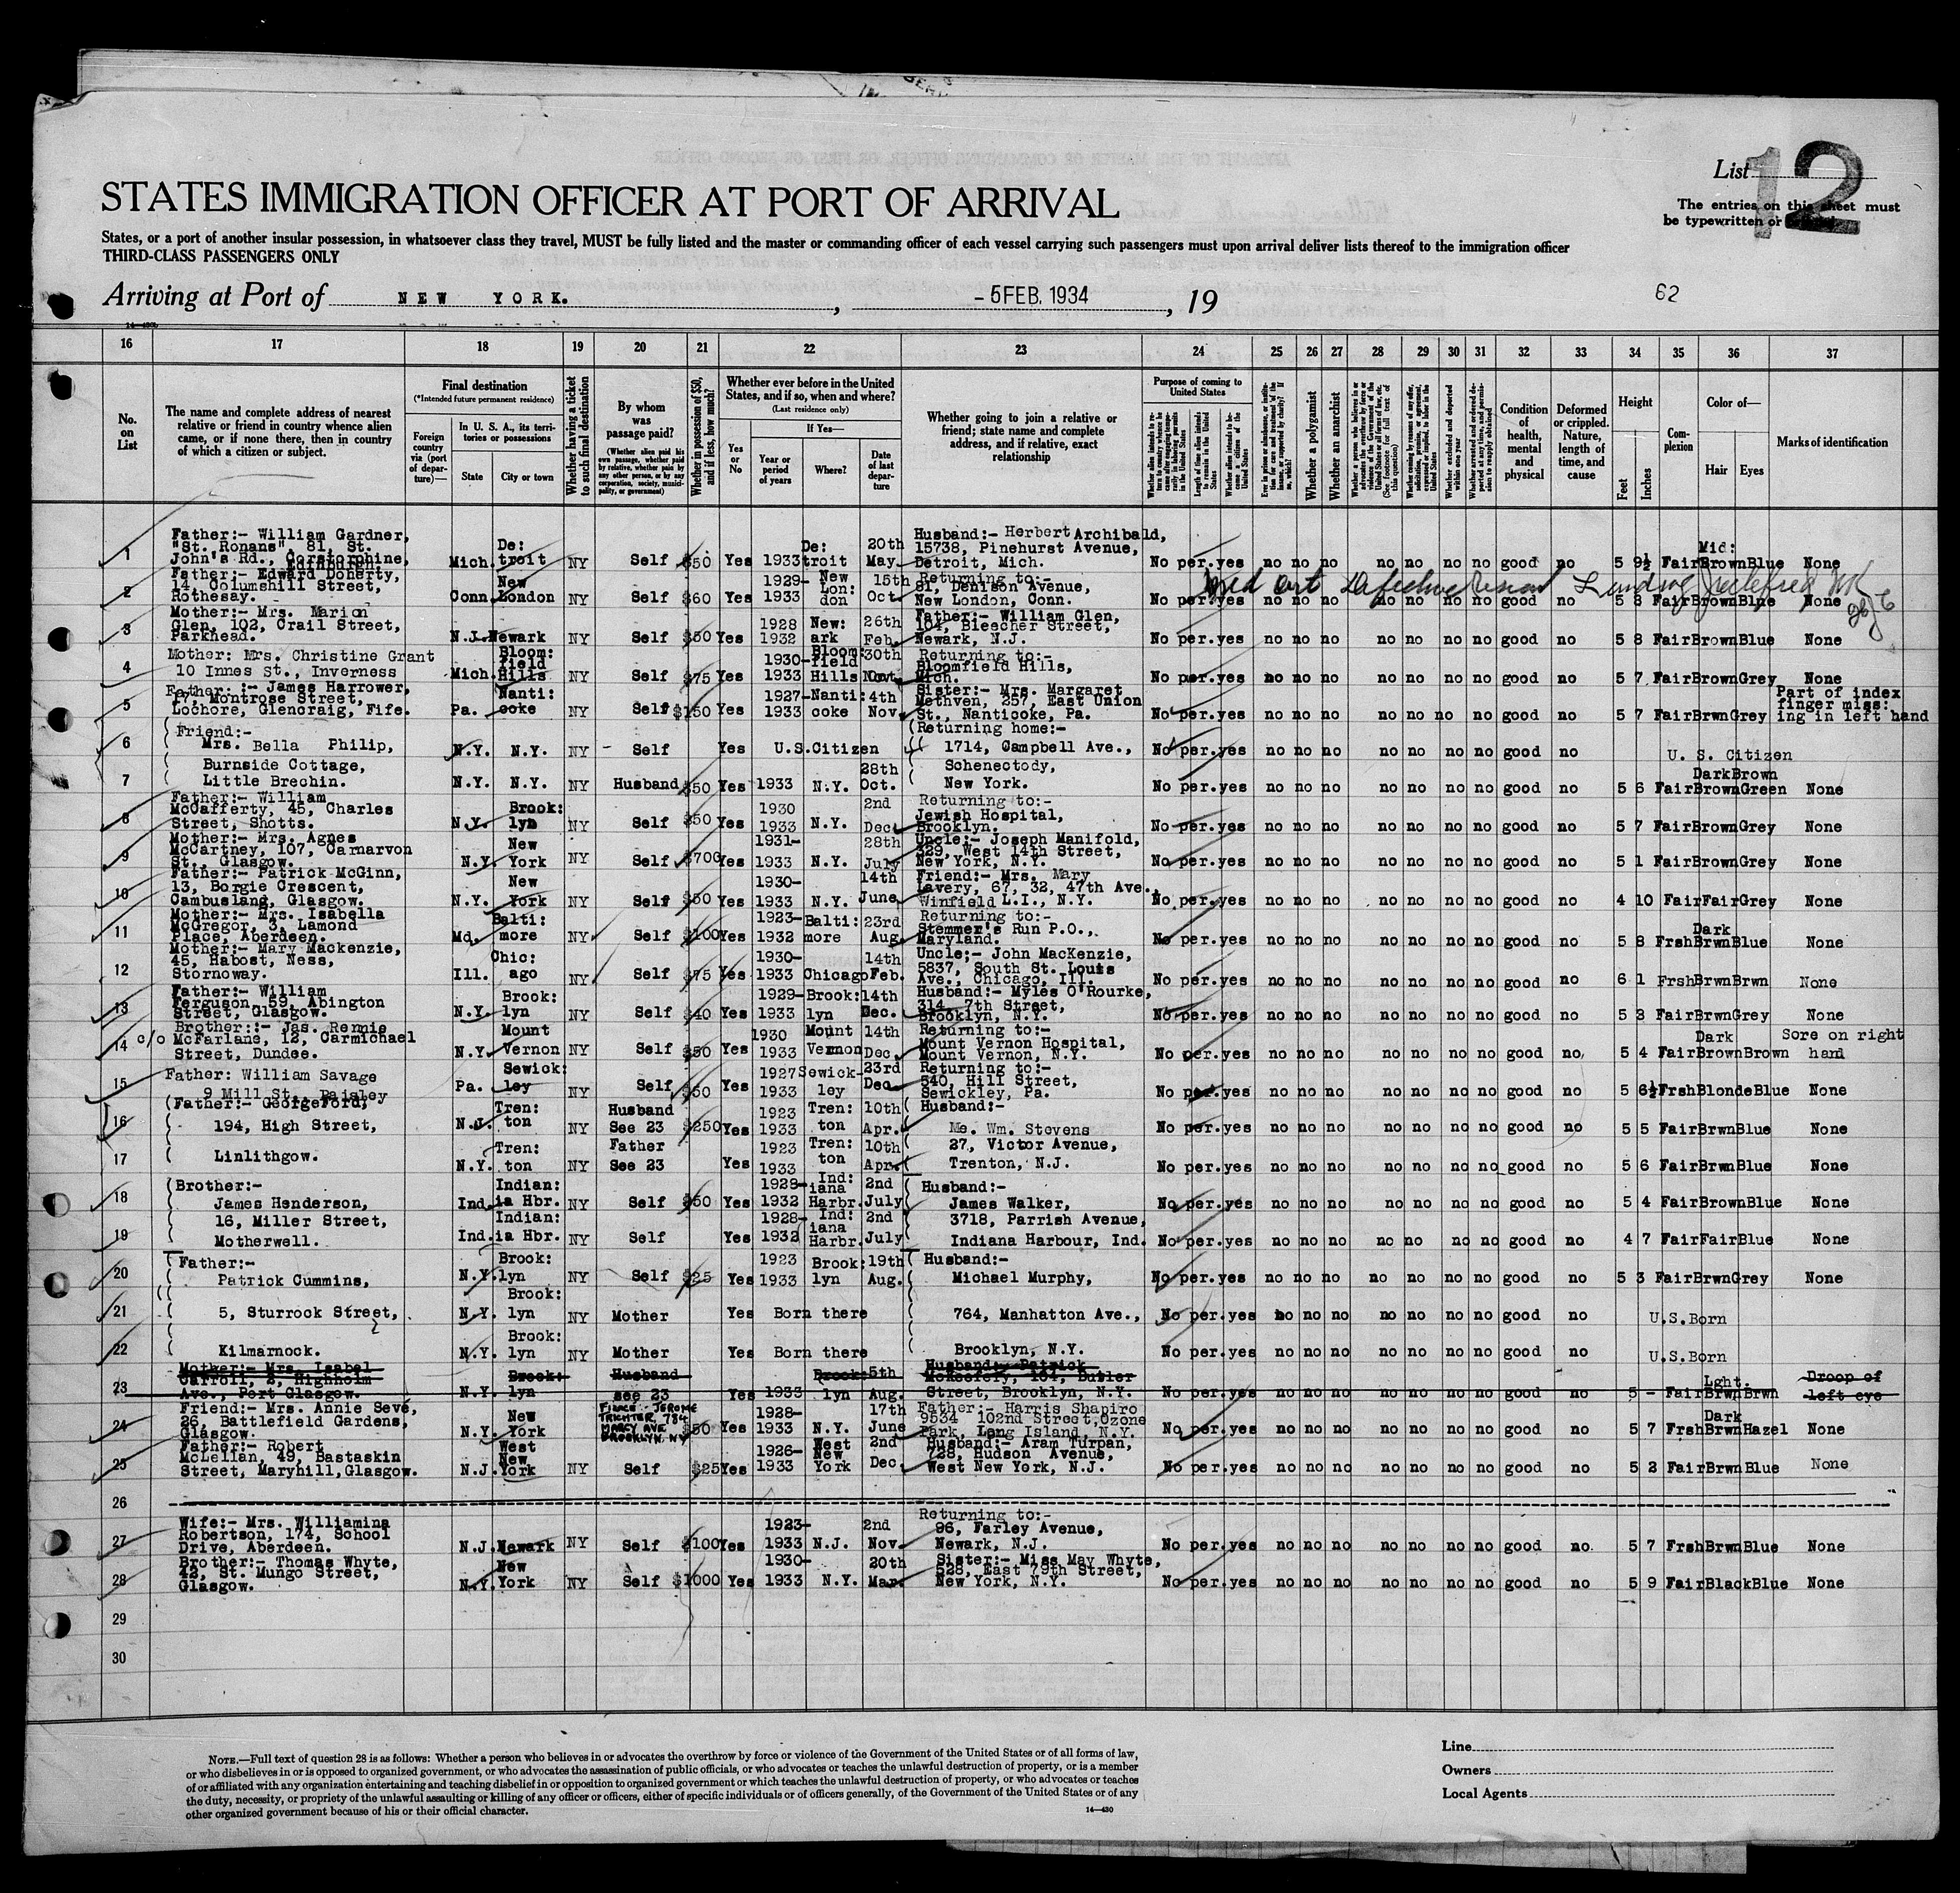 List 12
The entries on this sheet must
be typewritten or
STATES IMMIGRATION OFFICER AT PORT OF ARRIVAL
States, or a port of another insular possession, in whatsoever class they travel, MUST be fully listed and the master or commanding officer of each vessel carrying such passengers must upon arrival deliver lists thereof to the immigration officer
THIRD-CLASS PASSENGERS ONLY
Arriving at Port of NEW YORK. , -5 FEB. 1934 , 19
62
16 17 18 19 20 21 22 23 24 25 26 27 28 29 30 31 32 33 34 35 36 37
No. on List
The name and complete address of nearest relative or friend in country whence alien came, or if none there, then in country of which a citizen or subject.
Final destination
(*Intended future permanent residence)
Foreign country via (port of departure)—
In U. S. A., its territories or possessions
State
City or town
Whether having a ticket to such final destination
By whom was passage paid?
(Whether alien paid his own passage, whether paid by relative, whether paid by any other person, or by any corporation, society, municipality, or government)
Whether in possession of $50, and if less, how much?
Whether ever before in the United States, and if so, when and where?
(Last residence only)
Yes or No
If Yes—
Year or period of years
Where?
Date of last departure
Whether going to join a relative or friend; state name and complete address, and if relative, exact relationship
Purpose of coming to United States
Whether a polygamist
Whether an anarchist
Condition of health, mental and physical
Deformed or crippled. Nature, length of time, and cause
Height
Feet
Inches
Complexion
Color of—
Hair
Eyes
Marks of identification
1 Father:- William Gardner, "St. Ronans", 81, St. John's Rd., Corstorphine, Edinburgh. Mich. De:troit NY Self $50 Yes 1933 De:troit 20th May Husband:- Herbert Archibald, 15738, Pinehurst Avenue, Detroit, Mich. No per. yes no no no no no no no good no 5 9½ Fair Mid: Brown Blue None
2 Father:- Edward Doherty, 14, Columshill Street, Rothesay. Conn. New London NY Self $60 Yes 1929-1933 New Lon:don 15th Oct. Returning to:- 91, Denison Avenue, New London, Conn. No per. yes no no no no no no no good no 5 3 Fair Brown Blue None
Med cert Defective vision
3 Mother:- Mrs. Marion Glen, 102, Crail Street, Parkhead. N.J. Newark NY Self $50 Yes 1928 1932 New:ark 26th Feb. Father:- William Glen, 104, Bleecher Street, Newark, N.J. No per. yes no no no no no no no good no 5 8 Fair Brown Blue None
4 Mother: Mrs. Christine Grant 10 Innes St., Inverness Mich. Bloom:field Hills NY Self $75 Yes 1930-1933 Bloom:field Hills 30th Returning to:- Bloomfield Hills, Mich. No per. yes no no no no no no no good no 5 7 Fair Brown Grey None
5 Father:- James Harrower, 17, Montrose Street, Lochore, Glencraig, Fife. Pa. Nanti:coke NY Self $150 Yes 1927-1933 Nanti:coke 4th Nov. Sister:- Mrs. Margaret Methven, 257, East Union St., Nanticoke, Pa. No per. yes no no no no no no no good no 5 7 Fair Brwn Grey Part of index finger miss:ing in left hand
6 Friend:- Mrs. Bella Philip, N.Y. N.Y. NY - Self Yes U.S. Citizen Returning home:- 1714, Campbell Ave., No per. yes no no no no no no no good no U. S. Citizen
7 Burnside Cottage, Little Brechin. N.Y. N.Y. NY Husband $50 Yes 1933 N.Y. 28th Oct. Schenectody, New York. No per. yes no no no no no no no good no 5 6 Fair Dark Brown Brown Green None
8 Father:- William McCafferty, 45, Charles Street, Shotts. N.Y. Brook:lyn NY Self $50 Yes 1930 1933 N.Y. 2nd Dec. Returning to:- Jewish Hospital, Brooklyn. No per. yes no no no no no no no good no 5 7 Fair Brown Grey None
9 Mother:- Mrs. Agnes McCartney, 107, Carnarvon St., Glasgow. N.Y. New York NY Self $700 Yes 1931-1933 N.Y. 28th July Uncle:- Joseph Manifold, 329, West 14th Street, New York, N.Y. No per. yes no no no no no no no good no 5 1 Fair Brown Grey None
10 Father:- Patrick McGinn, 13, Borgie Crescent, Cambusland, Glasgow. N.Y. New York NY Self $50 Yes 1930-1933 N.Y. 14th June Friend:- Mrs. Mary Lavery, 67, 32, 47th Ave., Winfield L.I., N.Y. No per. yes no no no no no no no good no 4 10 Fair Fair Grey None
11 Mother:- Mrs. Isabella McGregor, 3, Lamond Place, Aberdeen. Md. Balti:more NY Self $100 Yes 1923-1932 Balti:more 23rd Aug. Returning to:- Stemmer's Run P.O., Maryland. No per. yes no no no no no no no good no 5 8 Frsh Dark Brwn Blue None
12 Mother:- Mary Mackenzie, 45, Habost, Ness, Stornoway. Ill. Chic:ago NY Self $75 Yes 1930-1933 Chicago 14th Feb. Uncle;- John MacKenzie, 5837, South St. Louis Ave., Chicago, Ill. No per. yes no no no no no no no good no 6 1 Frsh Brwn Brwn None
13 Father:- William Ferguson, 59, Abington Street, Glasgow. N.Y. Brook:lyn NY Self $40 Yes 1929-1933 Brook:lyn 14th Dec. Husband:- Myles O'Rourke, 314, 7th Street, Brooklyn, N.Y. No per. yes no no no no no no no good no 5 3 Fair Brwn Grey None
14 Brother:- Jas. Rennie c/o McFarlane, 12, Carmichael Street, Dundee. N.Y. Mount Vernon NY Self $50 Yes 1930 1933 Mount Vernon 14th Dec. Returning to:- Mount Vernon Hospital, Mount Vernon, N.Y. No per. yes no no no no no no no good no 5 4 Fair Dark Brown Brown Sore on right hand
15 Father: William Savage 9 Mill St., Paisley Pa. Sewick:ley NY Self $50 Yes 1927 1933 Sewick-ley 23rd Dec. Returning to:- 540, Hill Street, Sewickley, Pa. No per. yes no no no no no no no good no 5 6½ Frsh Blonde Blue None
16 Father:- George Ford, 194, High Street, N.J. Tren:ton NY Husband See 23 $250 Yes 1923 1933 Tren:ton 10th Apr. Husband:- Wm. Stevens No per. yes no no no no no no no good no 5 5 Fair Brwn Blue None
17 Linlithgow. N.Y. Tren:ton NY Father See 23 Yes 1923 1933 Tren:ton 10th Apr. 27, Victor Avenue, Trenton, N.J. No per. yes no no no no no no no good no 5 6 Fair Brwn Blue None
18 Brother:- James Henderson, Ind. Indian:ia Hbr. NY Self $50 Yes 1928-1932 Ind:iana Harbr. 2nd July Husband:- James Walker, No per. yes no no no no no no no good no 5 4 Fair Brown Blue None
19 16, Miller Street, Motherwell. Ind. Indian:ia Hbr. NY Self Yes 1928-1932 Ind:iana Harbr. 2nd July 3718, Parrish Avenue, Indiana Harbour, Ind. No per. yes no no no no no no no good no 4 7 Fair Fair Blue None
20 Father:- Patrick Cummins, N.Y. Brook:lyn NY Self $25 Yes 1923 1933 Brook:lyn 19th Aug. Husband:- Michael Murphy, No per. yes no no no no no no no good no 5 3 Fair Brwn Grey None
21 5, Sturrock Street, N.Y. Brook:lyn NY Mother Yes Born there 764, Manhatton Ave., No per. yes no no no no no no no good no U.S. Born
22 Kilmarnock. N.Y. Brook:lyn NY Mother Yes Born there Brooklyn, N.Y. No per. yes no no no no no no no good no U.S. Born
23 Mother:- Mrs. Isabel Carroll, 2, Highholm Ave., Port Glasgow. N.Y. Brook:lyn Husband see 23 Yes 1933 Brook:lyn 5th Aug. Husband:- Patrick 164, Butler Street, Brooklyn, N.Y. No per. yes no no no no no no no good no 5 - Fair Lght. Brwn Brwn Droop of left eye
24 Friend:- Mrs. Annie Seve, 26, Battlefield Gardens, Glasgow. N.Y. New York FIANCE - JEROME TRICHTER 784 MARCY AVE BROOKLYN. NY $50 Yes 1928-1933 N.Y. 17th June Father:- Harris Shapiro 9534 102nd Street, Ozone Park, Long Island, N.Y. No per. yes no no no no no no no good no 5 7 Frsh Dark Brwn Hazel None
25 Father:- Robert McLellan, 49, Bastaskin Street, Maryhill, Glasgow. N.J. West New York NY Self $25 Yes 1926-1933 West New York 2nd Dec. Husband:- Aram Turpan, 728, Hudson Avenue, West New York, N.J. No per. yes no no no no no no no good no 5 2 Fair Brwn Blue None
26
27 Wife:- Mrs. Williamina Robertson, 174, School Drive, Aberdeen. N.J. Newark NY Self $100 Yes 1923-1933 N.J. 2nd Nov. Returning to:- 96, Farley Avenue, Newark, N.J. No per. yes no no no no no no no good no 5 7 Frsh Brwn Blue None
28 Brother:- Thomas Whyte, 42, St. Mungo Street, Glasgow. N.Y. New York NY Self $1000 Yes 1930-1933 N.Y. 20th Mar. Sister:- Miss May Whyte, 528, East 79th Street, New York, N.Y. No per. yes no no no no no no no good no 5 9 Fair Black Blue None
29
30
NOTE.—Full text of question 28 is as follows: Whether a person who believes in or advocates the overthrow by force or violence of the Government of the United States or of all forms of law,
or who disbelieves in or is opposed to organized government, or who advocates the assassination of public officials, or who advocates or teaches the unlawful destruction of property, or is a member
of or affiliated with any organization entertaining and teaching disbelief in or opposition to organized government or which teaches the unlawful destruction of property, or who advocates or teaches
the duty, necessity, or propriety of the unlawful assaulting or killing of any officer or officers, either of specific individuals or of officers generally, of the Government of the United States or of any
other organized government because of his or their official character.
14—430
Line
Owners
Local Agents